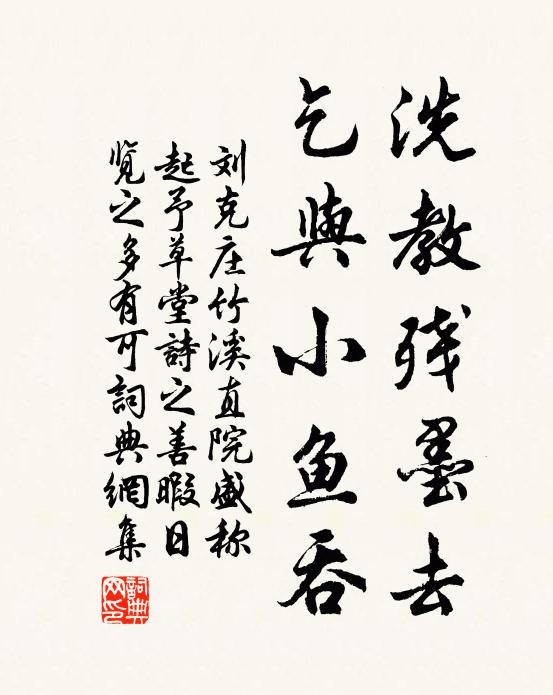 洗教残墨去
乞與小鱼吞
刘克庄竹溪直院盛称
起予草堂詩之善暇日
覧之多有可詞典網集
詞典
网印